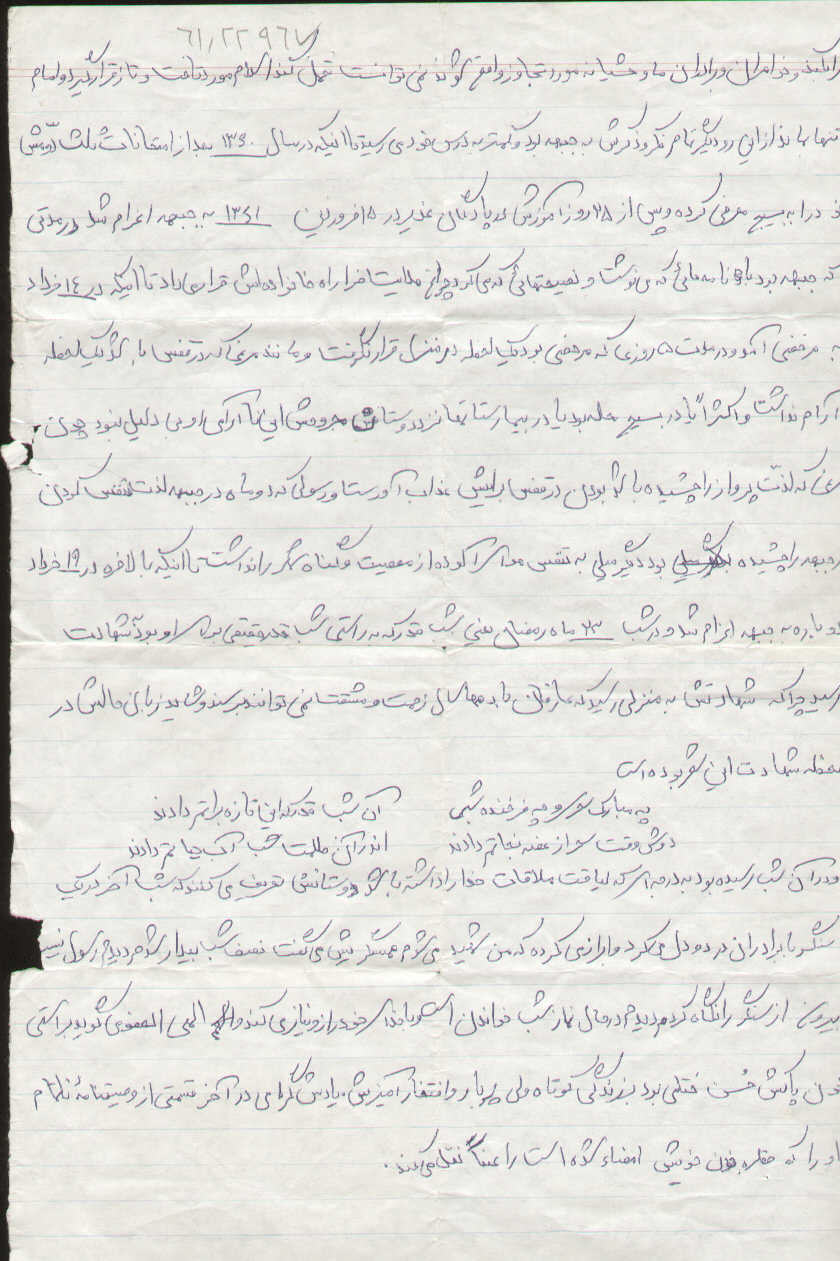 ۶۱٫۲۲۹۶۷
و خواهران و برادران ما وحشیانه مورد تجاوز واقع شوند نمی توانست تحمل کند اسلام مورد تاخت و تاز قرار گیرد و امام
تنها بماند از این رو دیگر تمام فکر و ذکرش به جبهه بود و کمتر به درس خود می رسید تا اینکه در سال ۱۳۶۰ بعد از امتحانات ثلث دومش
خود را به بسیج معرفی کرده و پس از ۲۸ روز آموزش در پادگان غدیر در ۱۵ فروردین ۱۳۶۱ به جبهه اعزام شد در مدتی
که جبهه بود با نامه هائی که می نوشت و نصیحتهائی که می کرد چراغ هدایت را فرا راه خانواده اش قرار می داد تا اینکه در ۱۴ خرداد
به مرخصی آمد و در مدت ۵ روزی که مرخصی بود یک لحظه در منزل قرار نگرفت و مانند مرغی که در قفس باشد یک لحظه
آرام نداشت و اکثراً یا در بسیج محله بود یا در بیمارستانها نزد دوستان مجروحش این ناآرامی او بی دلیل نبود چون
مرغی که لذت پرواز را چشیده باشد بودن در قفس برایش عذاب آور است و رسولی که دو ماه در جبهه لذت تنفس کردن
در جبهه را چشیده بود دیگر میلی به تنفس هوای آلوده از معصیت و گناه شهر را نداشت تا اینکه بالاخره در ۱۹ خرداد
دوباره به جبهه اعزام شد و در شب ۲۳ ماه رمضان یعنی شب قدر که به راستی شب قدر حقیقی برای او بود به شهادت
رسید چرا که شهادتش به منزلی رسید که عارفان با دهها سال زحمت و مشقت نمی توانند برسند و شاید زبان حالش در
لحظه شهادت این شعر بوده است
چه مبارک سحری و چه فرخنده شبی آن شب قدر که این تازه براتم دادند
دوش وقت سحر از غصه نجاتم دادند اندر آن ظلمت شب آب حیاتم دادند
و در آن شب رسیده بود به درجه ای که لیاقت ملاقات خدا را داشته باشد دوستانش تعریف می کنند که شب آخر در یک
سنگر با برادران درد دل می کرد و ابراز می کرده که من شهید می شوم همسنگریش می گفت نصف شب بیدار شدم دیدم رسول نیست
بیرون از سنگر را نگاه کردم دیدم در حال نماز شب خواندن است و با خدای خود راز و نیاز می کند و الهی العفو می گوید براستی
چون پاکش حسن ختمی بود بر زندگی کوتاه ولی پربار و افتخار آمیزش. یادش گرامی در آخر قسمتی از وصیتنامه ناتمام
او را که با خون خویش امضاء شده است را عیناً نقل می کنند.